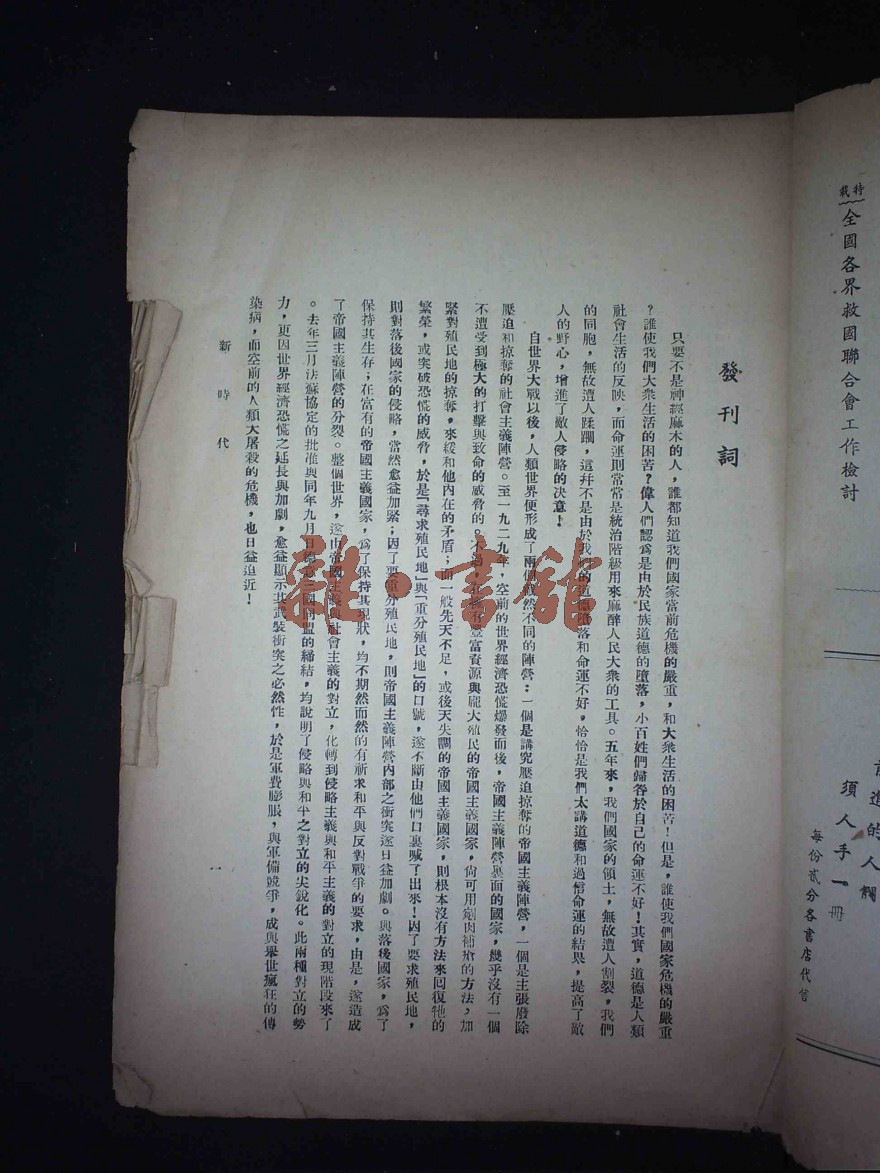 特載
全國各界救國聯合會工作檢討
前進的人
須人手一冊
每份貳分各書店代售
發刊詞
只要不是神經麻木的人，誰都知道我們國家當前危機的嚴重，和大衆生活的困苦！但是，誰使我們國家危機的嚴重
？誰使我們大衆生活的困苦？偉人們認爲是由於民族道德的墮落，小百姓們歸咎於自己的命運不好！其實，道德是人類
社會生活的反映，而命運則常常是統治階級用來麻醉人民大衆的工具。五年來，我們國家的領土，無故遭人割裂，我們
的同胞，無故遭人蹂躪，這幷不是由於我們的道德墮落和命運不好，恰恰是我們太講道德和過信命運的結果，提高了敵
人的野心，增進了敵人侵略的決意！
自世界大戰以後，人類世界便形成了兩個截然不同的陣營：一個是講究壓迫掠奪的帝國主義陣營，一個是主張廢除
壓迫和掠奪的社會主義陣營。至一九二九年，空前的世界經濟恐慌爆發而後，帝國主義陣營裏面的國家，幾乎沒有一個
不遭受到極大的打擊與致命的威脅的。不過，在擁有豐富資源與龐大殖民的帝國主義國家，尙可用剜肉補瘡的方法，加
緊對殖民地的掠奪，來緩和他內在的矛盾；而一般先天不足，或後天失調的帝國主義國家，則根本沒有方法來囘復牠的
繁榮，或突破恐慌的威脅，於是「尋求殖民地」與「重分殖民地」的口號，遂不斷由他們口裏喊了出來！因了要求殖民地，
則對落後國家的侵略，當然愈益加緊；因了要重分殖民地，則帝國主義陣營內部之衝突遂日益加劇。與落後國家，爲了
保持其生存；在富有的帝國主義國家，爲了保持其現狀，均不期然而然的有祈求和平與反對戰爭的要求，由是，遂造成
了帝國主義陣營的分裂。整個世界，遂由帝國主義與社會主義的對立，化轉到侵略主義與和平主義的對立的現階段來了
。去年三月法蘇協定的批准與同年九月日德意三國同盟的締結，均說明了侵略與和平之對立的尖銳化。此兩種對立的勢
力，更因世界經濟恐慌之延長與加劇，愈益顯示其武裝衝突之必然性，於是軍費膨脹，與軍備競爭，成與舉世瘋狂的傳
染病，而空前的人類大屠殺的危機，也日益迫近！
新時代
一
雜·書舘